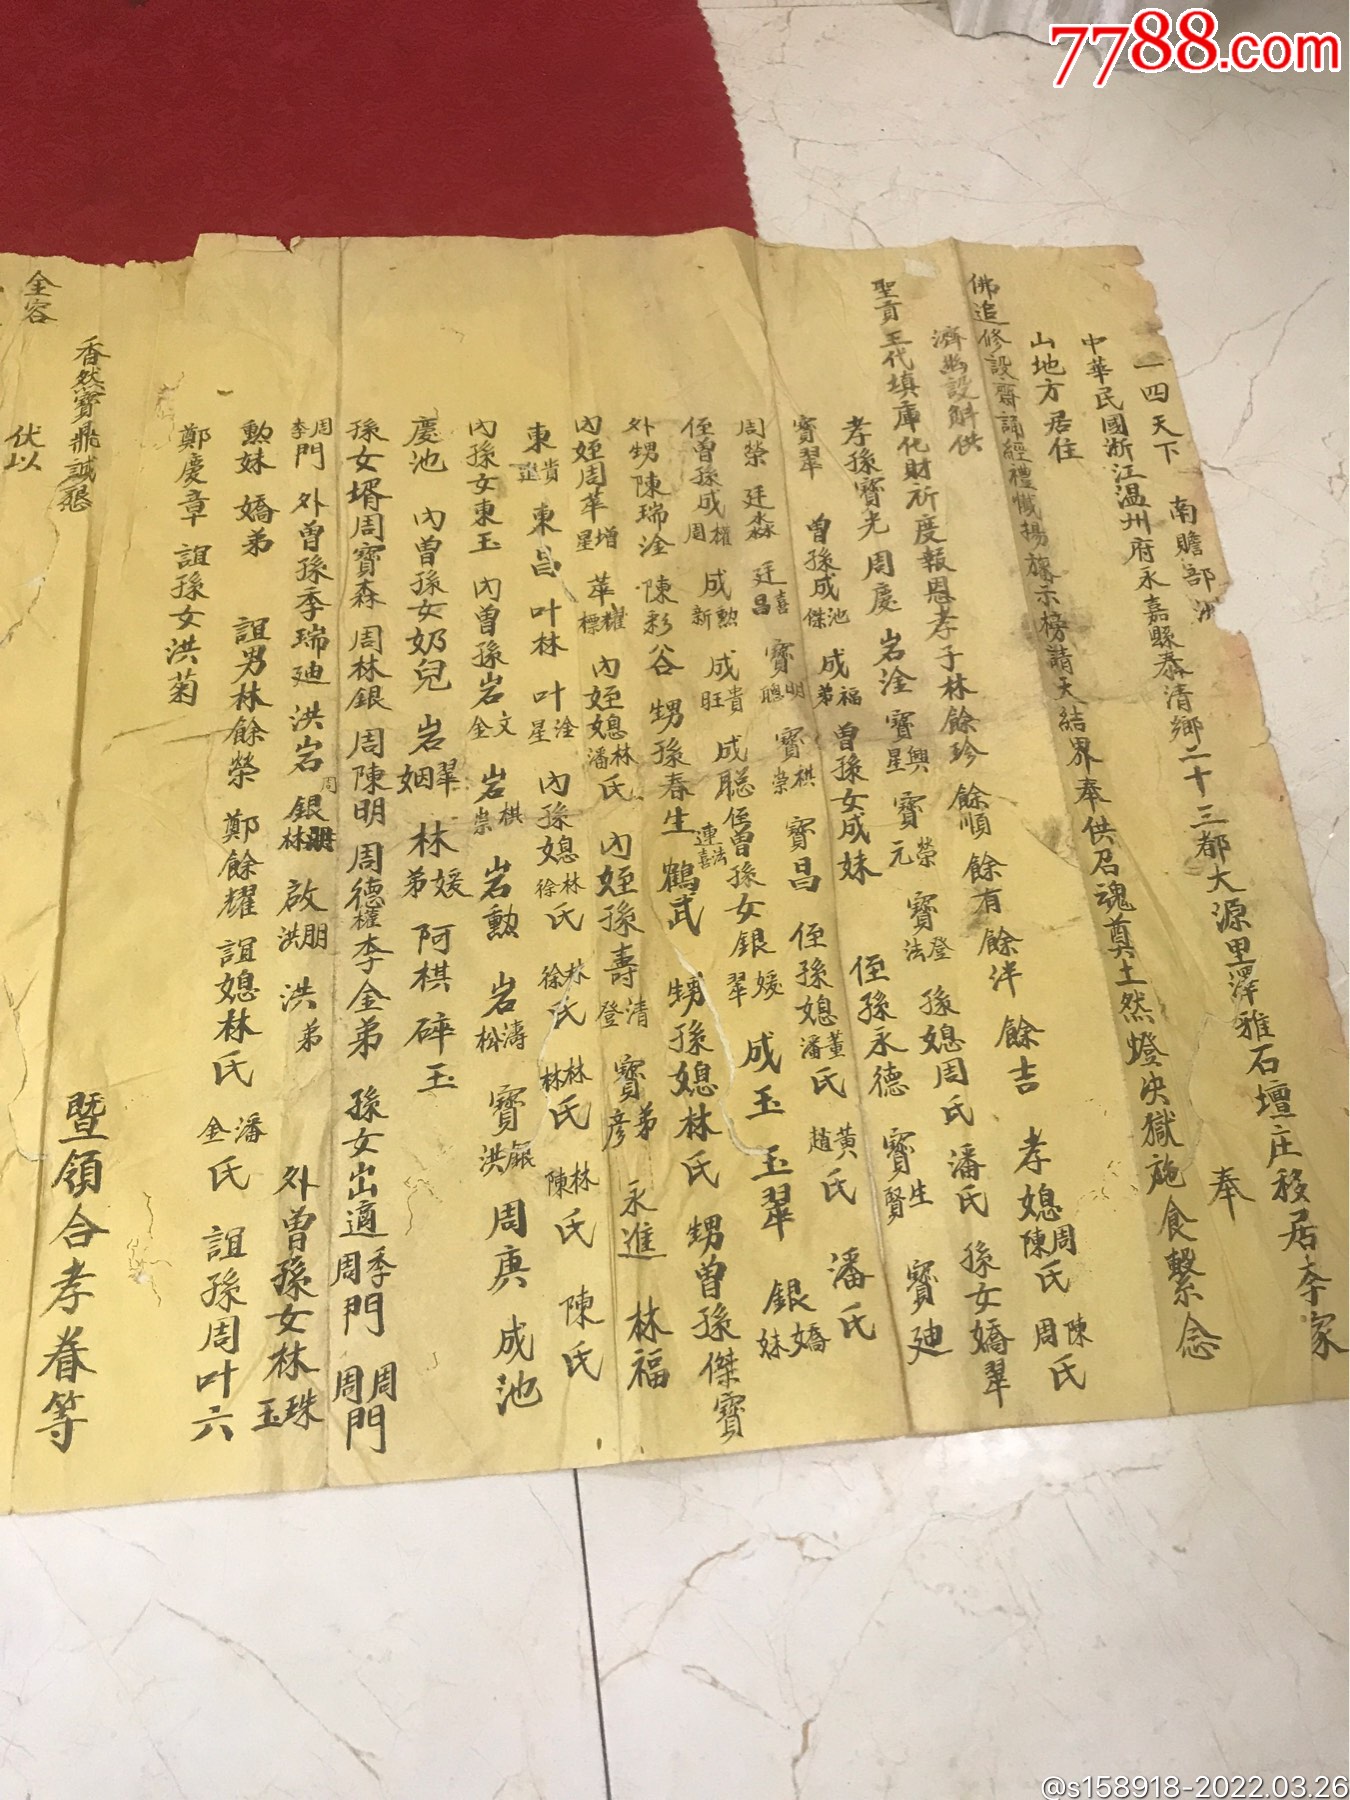 7788.com
一四天下 南贍部洲
中華民國浙江温州府永嘉縣泰清鄉二十三都大源里澤雅石壇庄移居李家
山地方居住 奉
佛追修設齋誦經禮懺揚旛示榜請天結界奉供召魂奠土然燈決獄施食繫念
濟幽設斛供
聖貢王代填庫化財祈度報恩孝子林餘珍 餘順 餘有 餘泮 餘吉 孝媳周陳氏 陳周氏
孝孫寶光 周慶 岩淦 寶興星 寶榮元 寶登法 孫媳周氏 潘氏 孫女嬌翠
寶翠 曾孫成池傑 成福弟 曾孫女成妹 侄孫永德 寶生賢 寶廸
周榮 廷森 廷喜昌 寶明聰 寶棋崇 寶昌 侄孫媳董潘氏 黃趙氏 潘氏
侄曾孫成權周 成勲新 成貴旺 成聪 侄曾孫女銀媛翠 成玉 玉翠 銀嬌妹
外甥陳瑞淦 陳彩谷 甥孫春生 連法喜 鶴武 甥孫媳林氏 甥曾孫傑寶
內姪周華增星 華耀標 內姪媳林潘氏 內姪孫壽清登 寶弟彦 永進 林福
東貴進 東昌 叶林 叶淦星 內孫媳林徐氏 林徐氏 林林氏 林陳氏 陳氏
內孫女東玉 內曾孫岩文金 岩棋崇 岩勲 岩濤松 寶銀洪 周庚 成池
慶池 內曾孫女奶兒 岩翠姻 林媛弟 阿棋 碎玉
孫女壻周寶森 周林銀 周陳明 周德權 李金弟 孫女出適季周門 周周門
周李門 外曾孫季瑞廸 洪岩 周銀林朋洪 啟朋洪 洪弟 外曾孫女林珠玉
勲妹 嬌弟 誼男林餘榮 鄭餘耀 誼媳林氏 潘金氏 誼孫周叶六
鄭慶章 誼孫女洪菊
暨領合孝眷等
香然寶鼎誠懇
金容
伏以
@s158918-2022.03.26